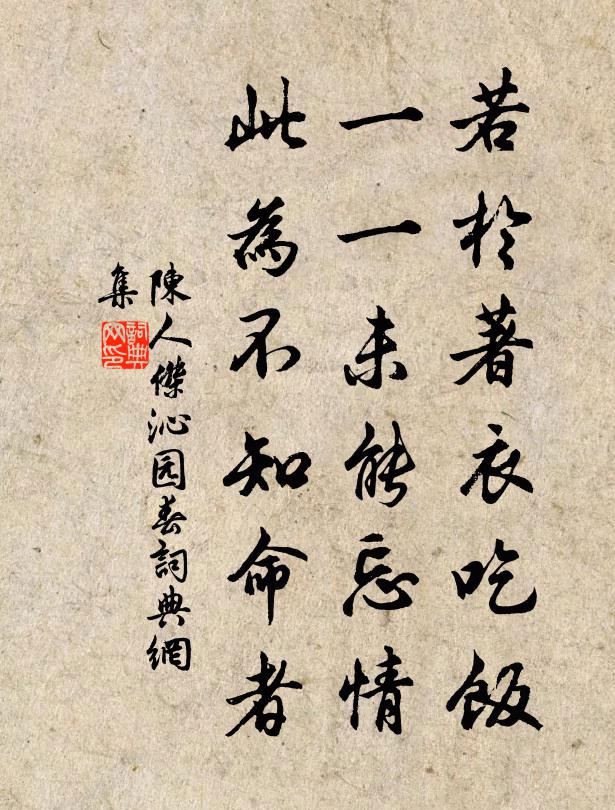 若於著衣吃飯
一一未能忘情
此為不知命者
陳人傑沁园春詞典網
集
詞典
网印